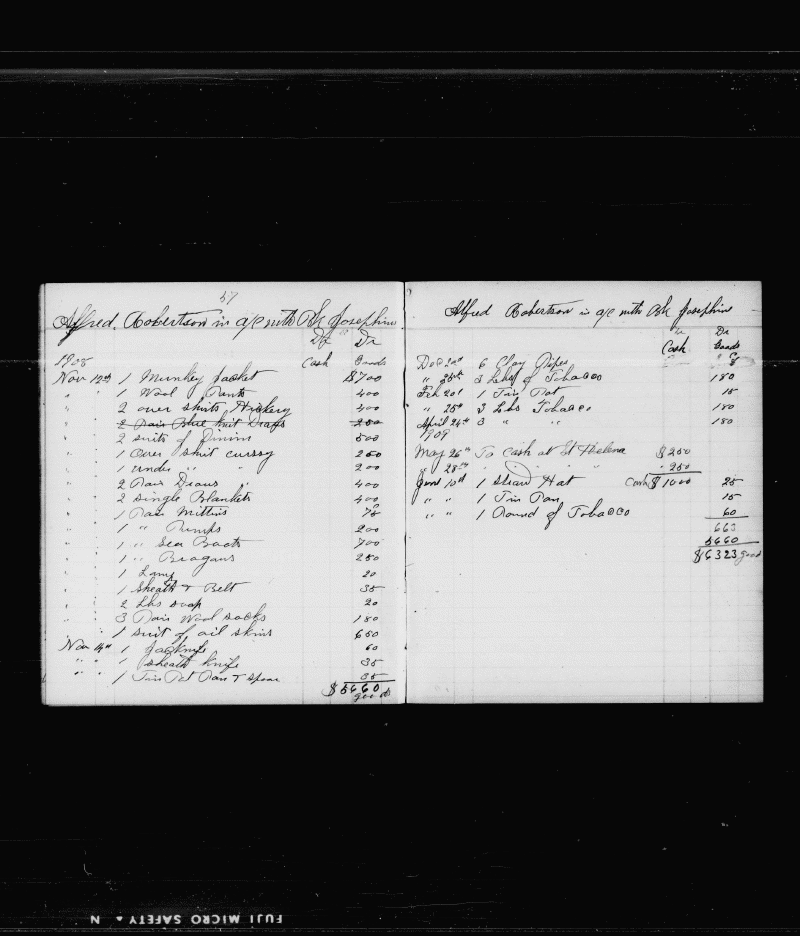 57
Alfred Robertson in a/c with Bk Josephine
Dr Dr
1908 Cash Goods
Nov 12th 1 Munkey Jacket $700
" " 1 Wool Pants 400
" " 2 over shirts Hickery 400
2 Pair Blue knit Draws 250
" " 2 suits of Dinim 500
" " 1 Over shirt cussy 250
" " 1 under " " 200
" " 2 Pair Draws 400
" " 2 single Blankets 400
" " 1 Pair Mittins 75
" " 1 " Pumps 200
" " 1 " Sea Boots 700
" " 1 " Brogans 250
" " 1 Lamp 20
" " 1 Sheath & Belt 35
" " 2 Lbs soap 20
" " 3 Pair Wool socks 180
" " 1 suit of oil skins 650
Nov 14th 1 Jacknife 60
" " 1 sheath knife 35
" " 1 Tin Pot Pan & spoon 35
$5660
goods
Alfred Robertson in a/c with Bk Josephine
Dr Dr
Cash Goods
Dec 20th 6 Clay Pipes 8
" 26th 3 Lbs of Tobacco 180
Feb 20th 1 Tin Pot 15
" 25th 3 Lbs Tobacco 180
April 24th 3 " " 180
1909
May 26th To Cash at St Helena $250
" 28th " " " " 250
June 10th 1 straw Hat Cash $1000 25
" " 1 Tin Pan 15
" " 1 Pound of Tobacco 60
663
5660
$6323 good
FUJI MICRO SAFETY ▲ N